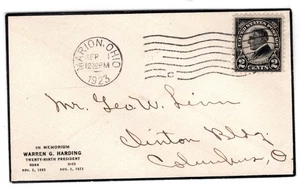 MARION, OHIO
SEP
12 30 PM
1923
2 CENTS 2
Mr. Geo. W. Linn
Clinton Bldg.
Columbus, O.
IN MEMORIUM
WARREN G. HARDING
TWENTY-NINTH PRESIDENT
BORN DIED
NOV. 2, 1865 AUG. 2, 1923